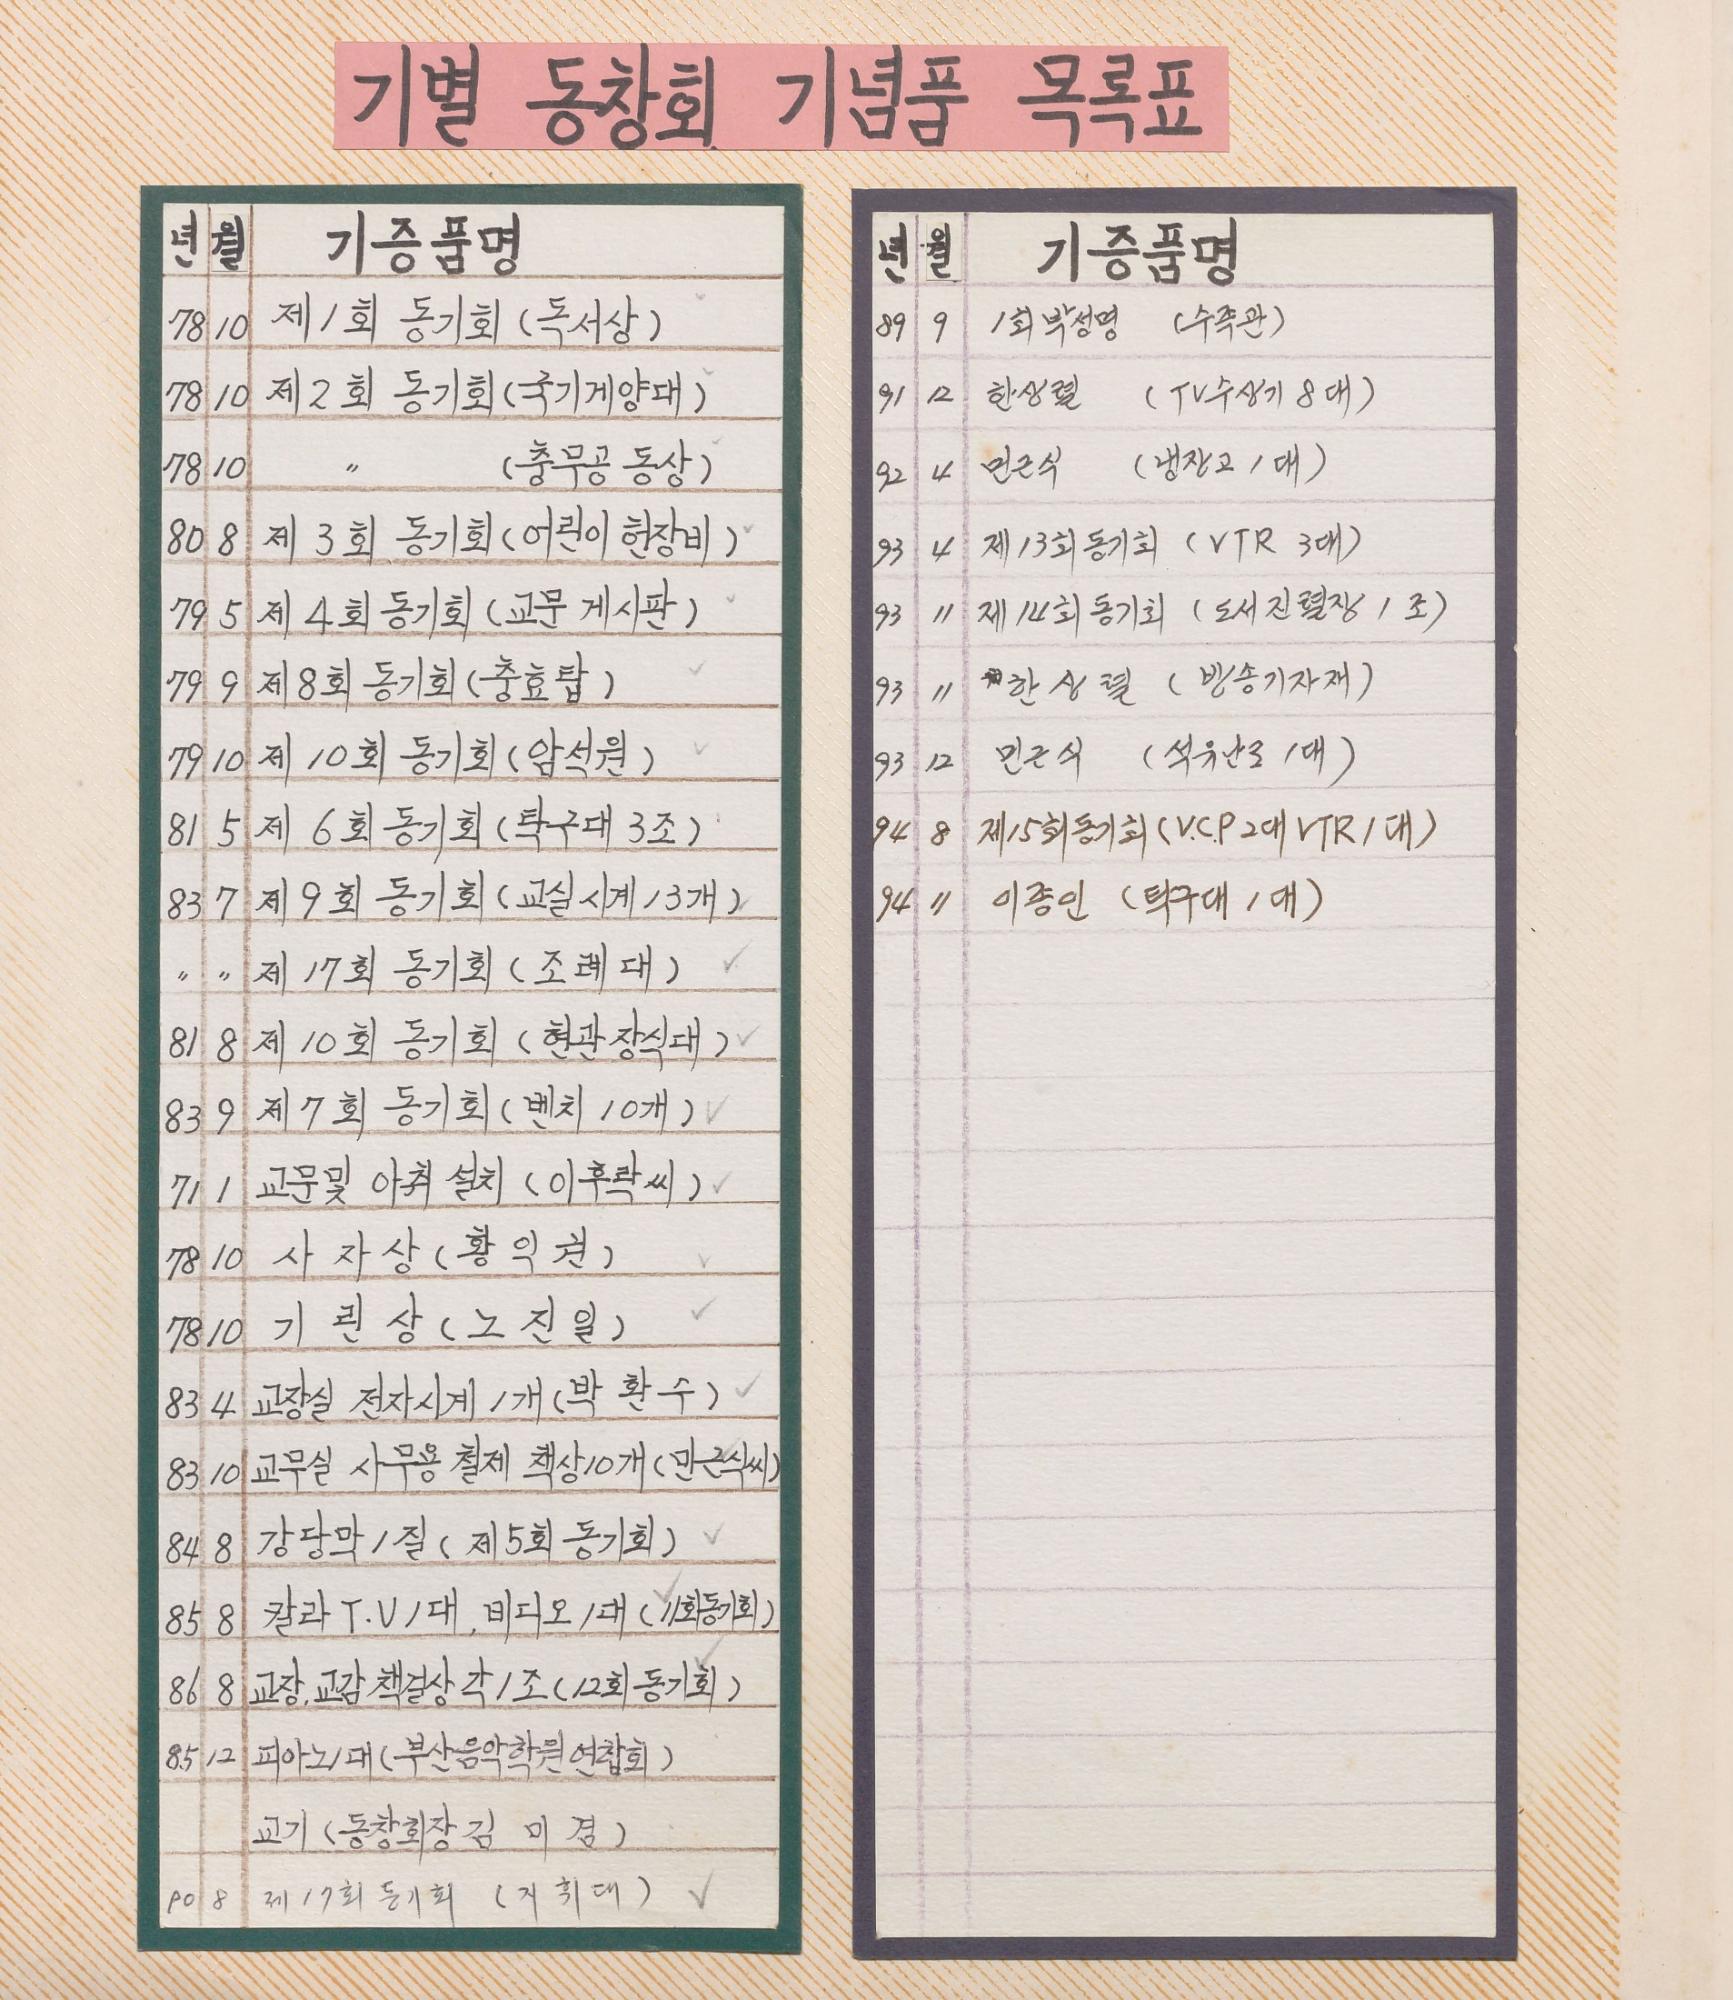 기별 동창회 기념품 목록표
년 월 기증품명
78 10 제1회 동기회 (독서상)
78 10 제2회 동기회 (국기게양대)
78 10 〃 (충무공 동상)
80 8 제3회 동기회 (어린이 헌장비)
79 5 제4회 동기회 (교문 게시판)
79 9 제8회 동기회 (충효탑)
79 10 제10회 동기회 (암석원)
81 5 제6회 동기회 (탁구대 3조)
83 7 제9회 동기회 (교실시계 13개)
〃 〃 제17회 동기회 (조례대)
81 8 제10회 동기회 (현관 장식대)
83 9 제7회 동기회 (벤치 10개)
71 1 교문및 아취 설치 (이후락씨)
78 10 사자상 (황익권)
78 10 기린상 (노진일)
83 4 교장실 전자시계 1개 (박환수)
83 10 교무실 사무용 철제 책상10개 (민근식씨)
84 8 강당막 1질 (제5회 동기회)
85 8 칼라 T.V 1대, 비디오 1대 (11회동기회)
86 8 교장,교감 책걸상 각1조 (12회 동기회)
85 12 피아노1대 (부산음악학원연합회)
교기 (동창회장 김미경)
90 8 제17회 동기회 (지휘대)
년 월 기증품명
89 9 1회 박성명 (수족관)
91 12 한상렬 (TV수상기 8대)
92 4 민근식 (냉장고 1대)
93 4 제13회 동기회 (VTR 3대)
93 11 제14회 동기회 (도서진렬장 1조)
93 11 한상렬 (방송기자재)
93 12 민근식 (석유난로 1대)
94 8 제15회 동기회 (V.C.P 2대 VTR 1대)
94 11 이종인 (탁구대 1대)